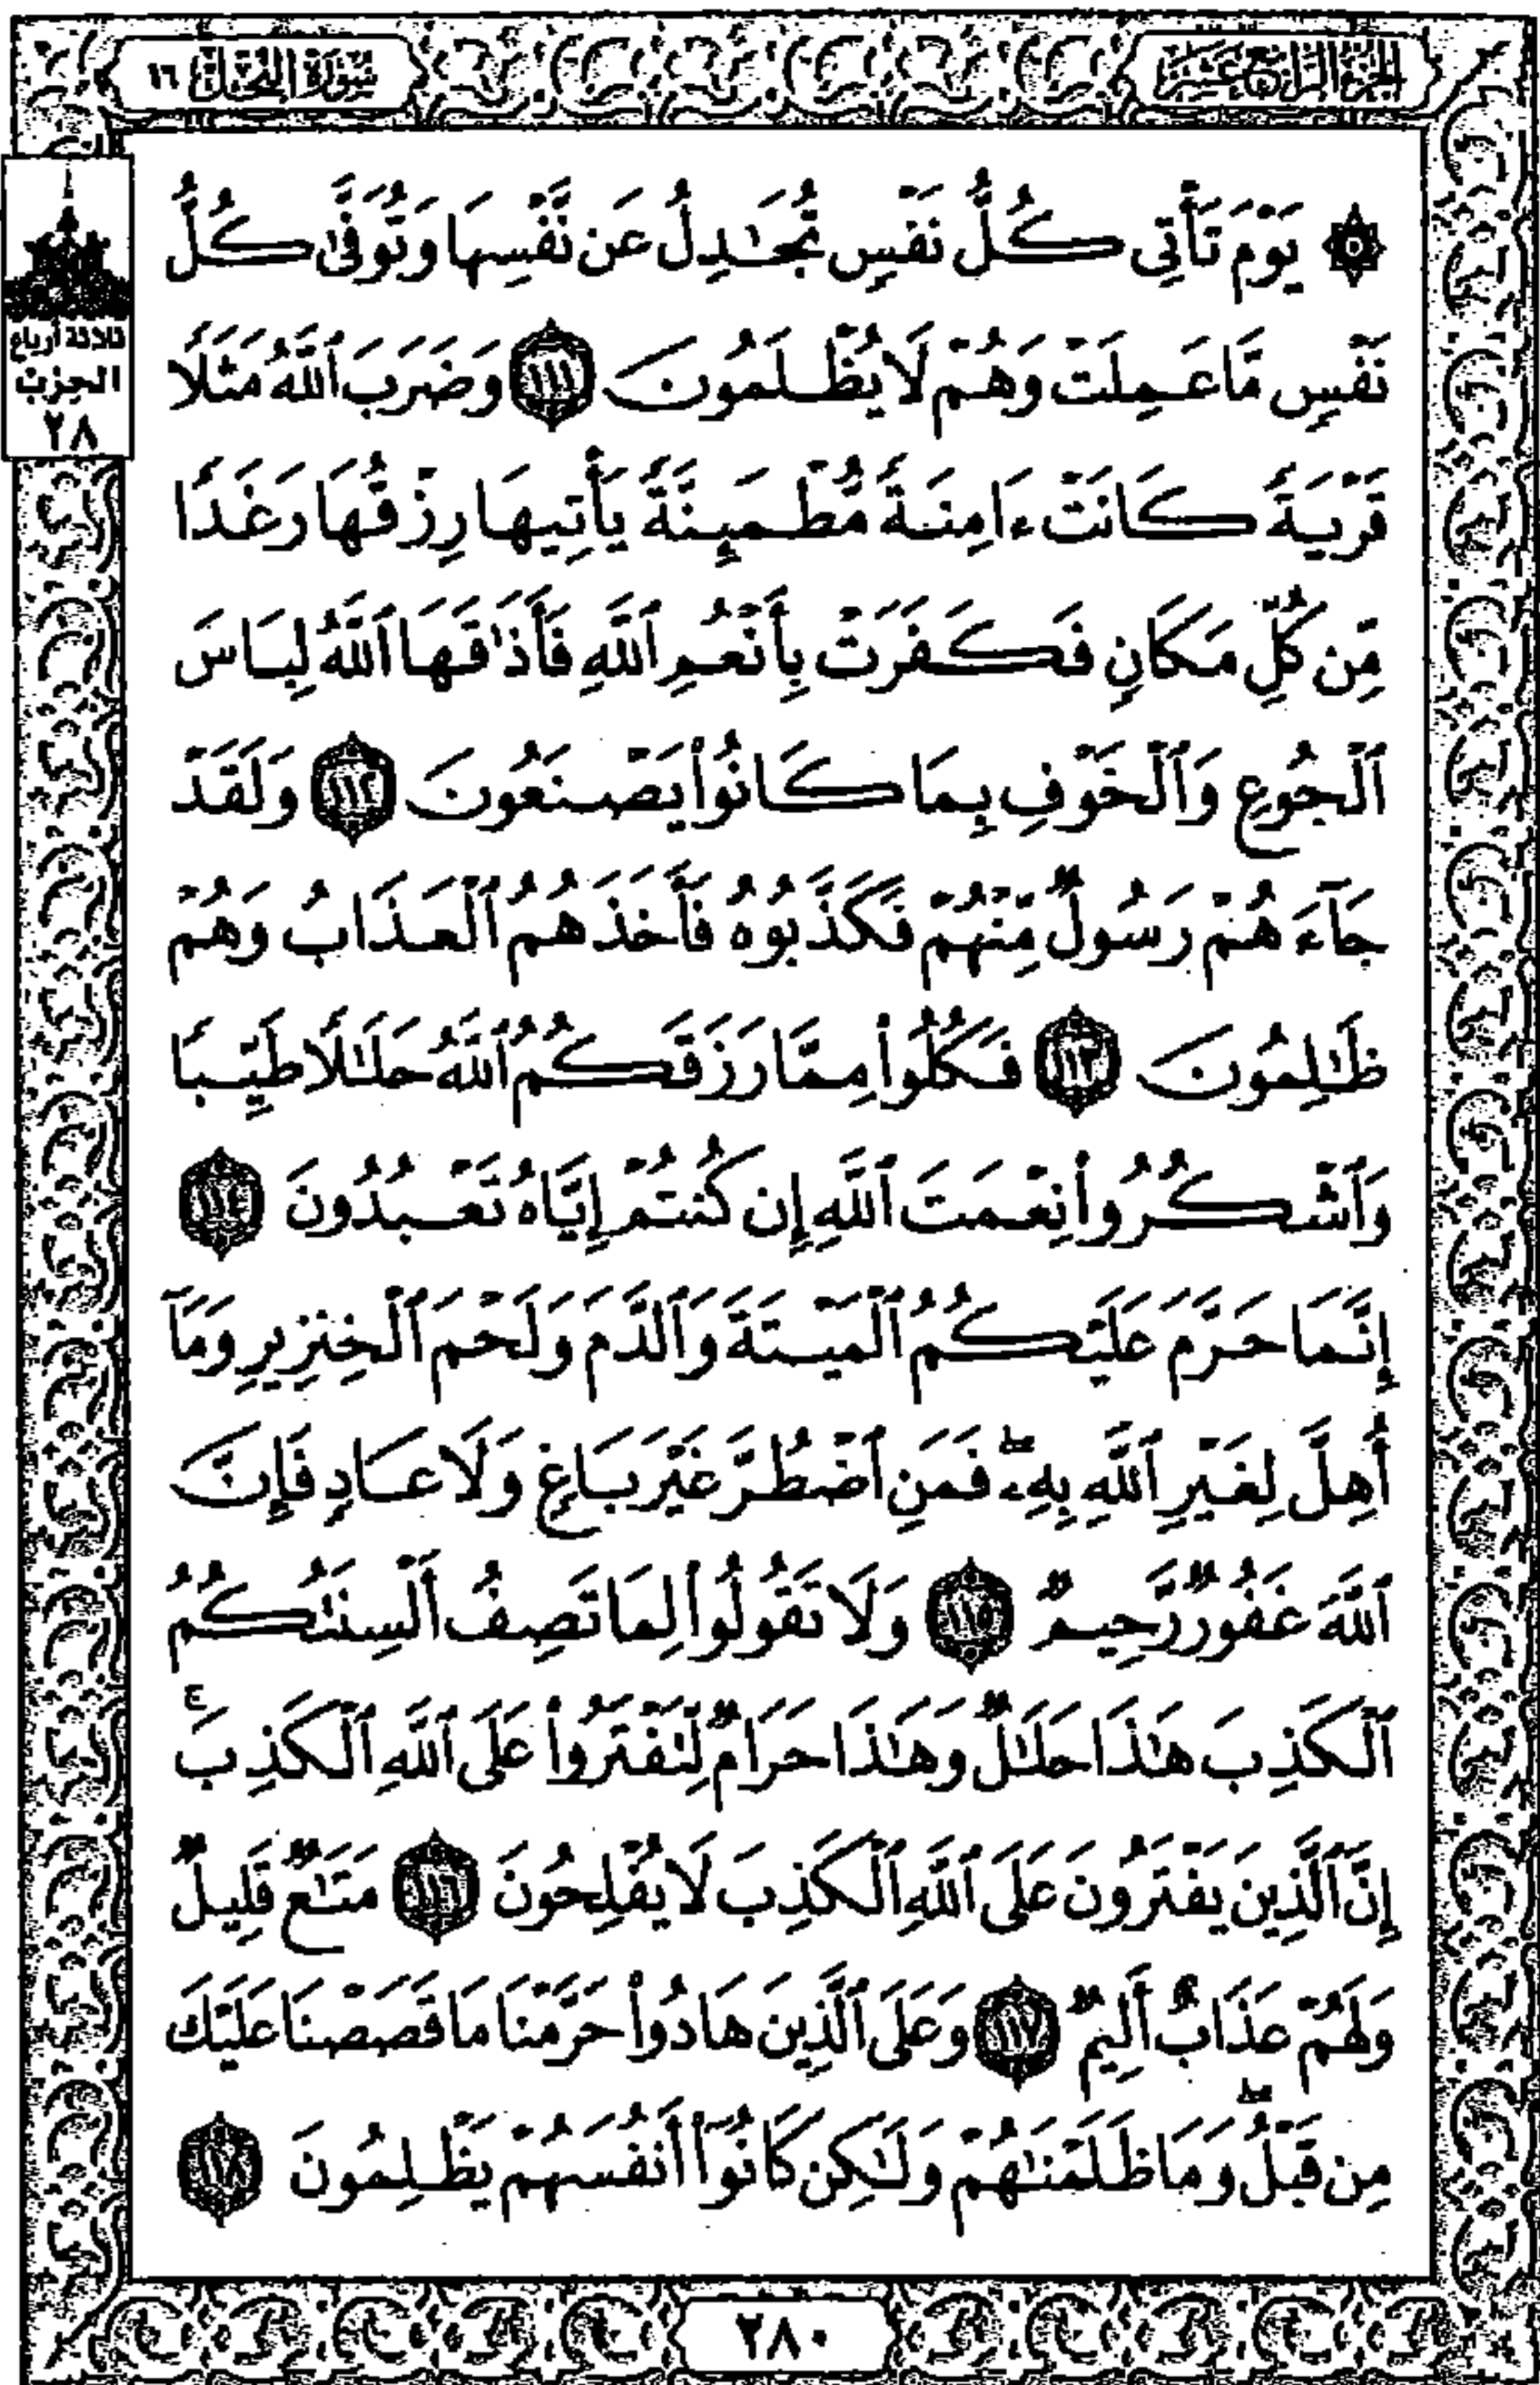 الجزء الرابع عشر
سورة النحل ١٦
ثلاثة أرباع
الحزب
٢٨
۞ يَوْمَ تَأْتِى كُلُّ نَفْسٍ تُجَٰدِلُ عَن نَّفْسِهَا وَتُوَفَّىٰ كُلُّ
نَفْسٍ مَّا عَمِلَتْ وَهُمْ لَا يُظْلَمُونَ ١١١ وَضَرَبَ ٱللَّهُ مَثَلًا
قَرْيَةً كَانَتْ ءَامِنَةً مُّطْمَئِنَّةً يَأْتِيهَا رِزْقُهَا رَغَدًا
مِّن كُلِّ مَكَانٍ فَكَفَرَتْ بِأَنْعُمِ ٱللَّهِ فَأَذَٰقَهَا ٱللَّهُ لِبَاسَ
ٱلْجُوعِ وَٱلْخَوْفِ بِمَا كَانُوا۟ يَصْنَعُونَ ١١٢ وَلَقَدْ
جَآءَهُمْ رَسُولٌ مِّنْهُمْ فَكَذَّبُوهُ فَأَخَذَهُمُ ٱلْعَذَابُ وَهُمْ
ظَٰلِمُونَ ١١٣ فَكُلُوا۟ مِمَّا رَزَقَكُمُ ٱللَّهُ حَلَٰلًا طَيِّبًا
وَٱشْكُرُوا۟ نِعْمَتَ ٱللَّهِ إِن كُنتُمْ إِيَّاهُ تَعْبُدُونَ ١١٤
إِنَّمَا حَرَّمَ عَلَيْكُمُ ٱلْمَيْتَةَ وَٱلدَّمَ وَلَحْمَ ٱلْخِنزِيرِ وَمَآ
أُهِلَّ لِغَيْرِ ٱللَّهِ بِهِۦ ۖ فَمَنِ ٱضْطُرَّ غَيْرَ بَاغٍ وَلَا عَادٍ فَإِنَّ
ٱللَّهَ غَفُورٌ رَّحِيمٌ ١١٥ وَلَا تَقُولُوا۟ لِمَا تَصِفُ أَلْسِنَتُكُمُ
ٱلْكَذِبَ هَٰذَا حَلَٰلٌ وَهَٰذَا حَرَامٌ لِّتَفْتَرُوا۟ عَلَى ٱللَّهِ ٱلْكَذِبَ ۚ
إِنَّ ٱلَّذِينَ يَفْتَرُونَ عَلَى ٱللَّهِ ٱلْكَذِبَ لَا يُفْلِحُونَ ١١٦ مَتَٰعٌ قَلِيلٌ
وَلَهُمْ عَذَابٌ أَلِيمٌ ١١٧ وَعَلَى ٱلَّذِينَ هَادُوا۟ حَرَّمْنَا مَا قَصَصْنَا عَلَيْكَ
مِن قَبْلُ ۖ وَمَا ظَلَمْنَٰهُمْ وَلَٰكِن كَانُوٓا۟ أَنفُسَهُمْ يَظْلِمُونَ ١١٨
٢٨٠